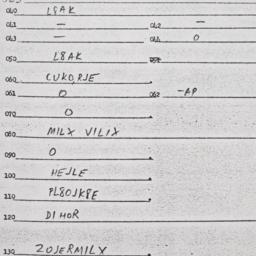 040 L8AK
041 — 042 —
043 — 044 0
050 L8AK
060 CUKO,RJE
061 0 062 -AP
070 0
080 MILX VILIX
090 0
100 HEJLE
110 PL8OJKPE
120 DIHOR
130 ZOJERMILX